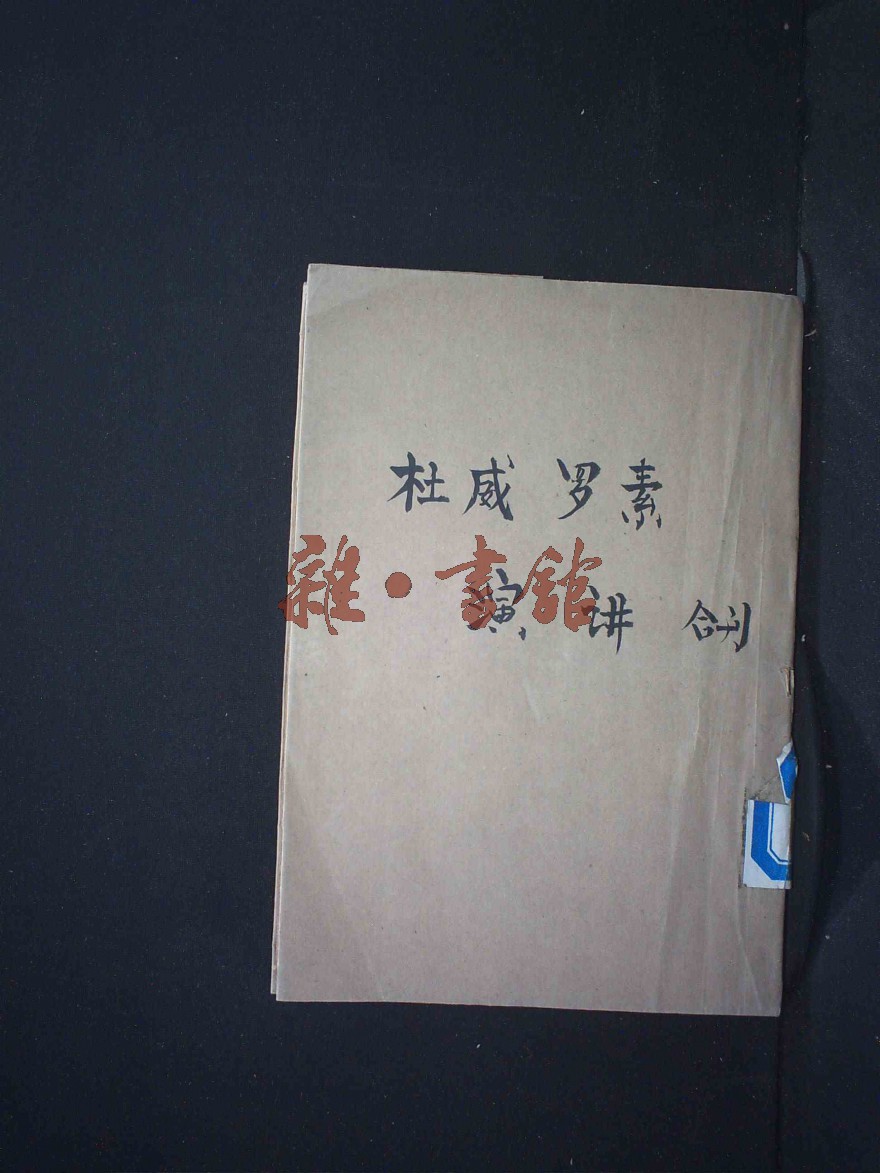 杜威 罗素
雜·書館
演讲 合刊